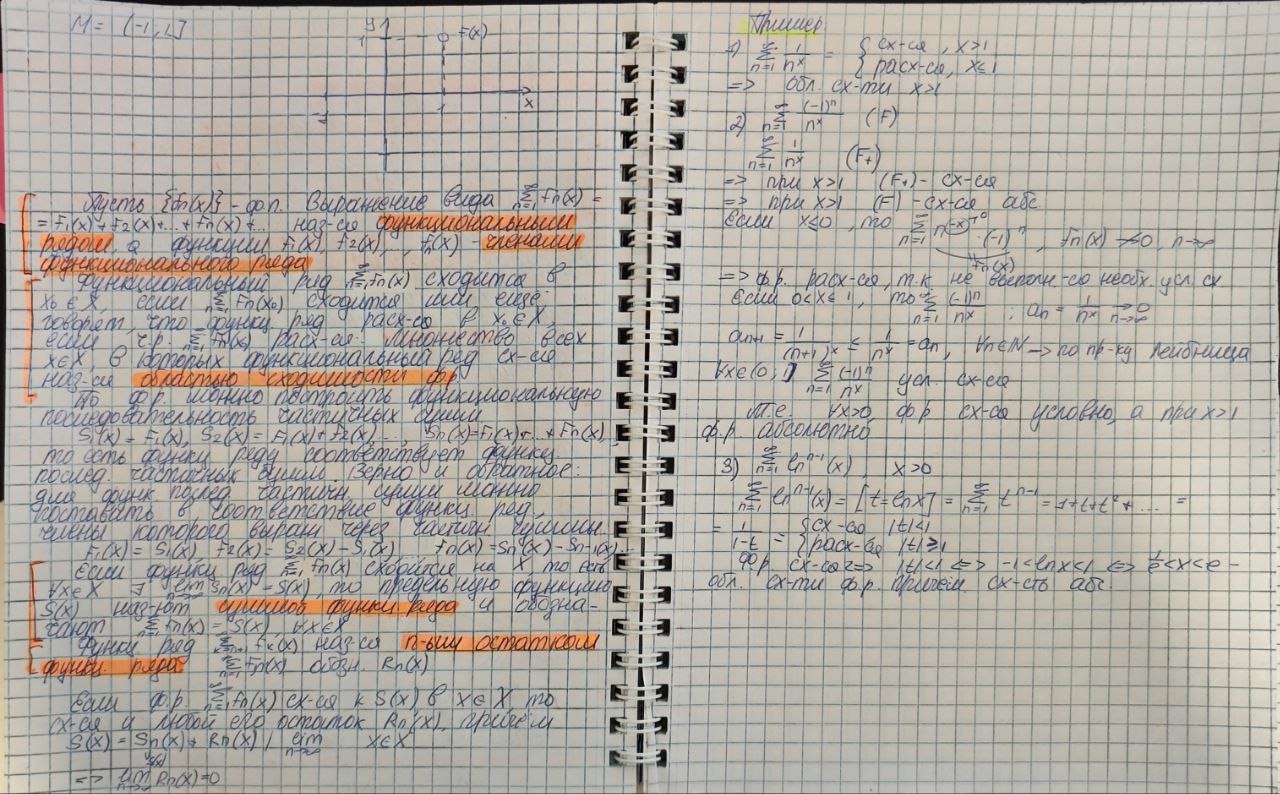 M = (-1, 1]
y
1
f(x)
-1
1
x
Пусть {fn(x)} - ф.п. Выражение вида ∑_{n=1}^∞ fn(x) =
= f1(x) + f2(x) + ... + fn(x) + ... наз-ся функциональным
рядом, а функции f1(x), f2(x), , fn(x) - членами
функционального ряда
Функциональный ряд ∑_{n=1}^∞ fn(x) сходится в
x0 ∈ X, если ∑_{n=1}^∞ fn(x0) сходится или еще
говорят, что функц. ряд расх-ся в x0 ∈ X,
если ч.р. ∑_{n=1}^∞ fn(x0) расх-ся. Множество всех
x ∈ X, в которых функциональный ряд сх-ся
наз-ся областью сходимости ф.р.
По ф.р. можно построить функциональную
последовательность частичных сумм
S1(x) = f1(x), S2(x) = f1(x) + f2(x), ..., Sn(x) = f1(x) + ... + fn(x),
то есть функц. ряду соответствует функц.
послед. частичных сумм. Верно и обратное:
для функ. послед. частичн. сумм можно
поставить в соответствие функц. ряд,
члены которого выраж через частичн суммы.
f1(x) = S1(x), f2(x) = S2(x) - S1(x) fn(x) = Sn(x) - Sn-1(x)...
Если функц ряд ∑_{n=1}^∞ fn(x) сходится на X, то есть
∀x∈X ∃ lim_{n→∞} Sn(x) = S(x), то предельную функцию
S(x) наз-ют суммой функц. ряда и обозна-
чают ∑_{n=1}^∞ fn(x) = S(x), ∀x∈X
Функц ряд ∑_{k=n+1}^∞ fk(x) наз-ся n-ым остатком
функц. ряда ∑_{n=1}^∞ fn(x), обозн. Rn(x)
Если ф.р. ∑_{n=1}^∞ fn(x) сх-ся к S(x) в x∈X, то
сх-ся и любой его остаток Rn(x), причем
S(x) = Sn(x) + Rn(x) | lim_{n→∞} x∈X
S(x)
=> lim_{n→∞} Rn(x) = 0
Пример.
1) ∑_{n=1}^∞ 1/n^x = { сх-ся, x>1
{ расх-ся, x≤1
=> обл. сх-ти x>1
2) ∑_{n=1}^∞ (-1)^n/n^x (F)
∑_{n=1}^∞ 1/n^x (F+)
=> при x>1 (F+) - сх-ся
=> при x>1 (F) - сх-ся абс.
Если x≤0, то ∑_{n=1}^∞ n^{(-x)≥0} · (-1)^n, fn(x) ↛ 0, n→∞
fn(x)
=> ф.р. расх-ся, т.к. не выполн-ся необх. усл. сх
Если 0<x≤1, то ∑_{n=1}^∞ (-1)^n/n^x ; an = 1/n^x → 0 n→∞
an+1 = 1/(n+1)^x ≤ 1/n^x = an, ∀n∈N → по пр-ку Лейбница
∀x∈(0; 1] ∑_{n=1}^∞ (-1)^n/n^x усл. сх-ся
Т.е. ∀x>0 ф.р. сх-ся условно, а при x>1
ф.р. абсолютно
3) ∑_{n=1}^∞ ln^{n-1}(x), x>0
∑_{n=1}^∞ ln^{n-1}(x) = [t=lnx] = ∑_{n=1}^∞ t^{n-1} = 1+t+t²+... =
= 1/(1-t) = { сх-ся |t|<1
{ расх-ся |t|≥1
Ф.р. сх-ся <=> |t|<1 <=> -1<lnx<1 <=> 1/e<x<e -
обл. сх-ти ф.р. причем сх-сть абс.